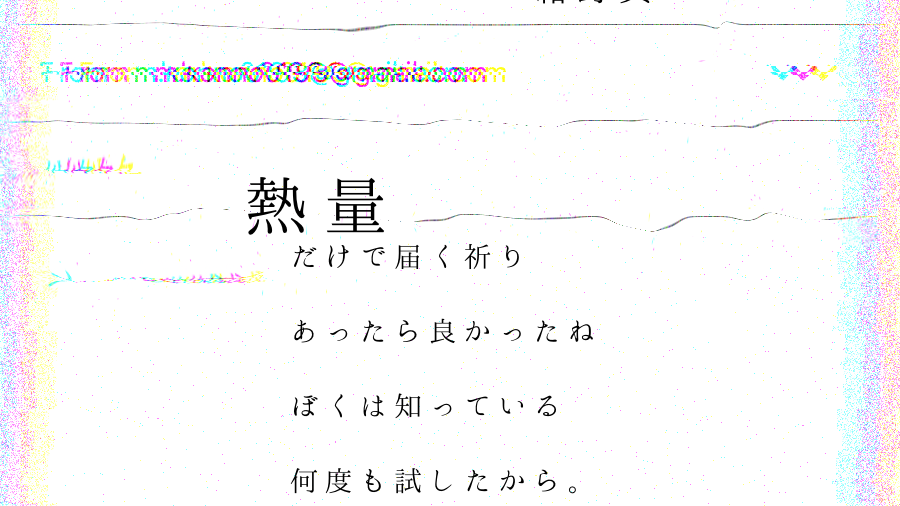 熱量
だけで届く祈り
あったら良かったね
ぼくは知っている
何度も試したから。